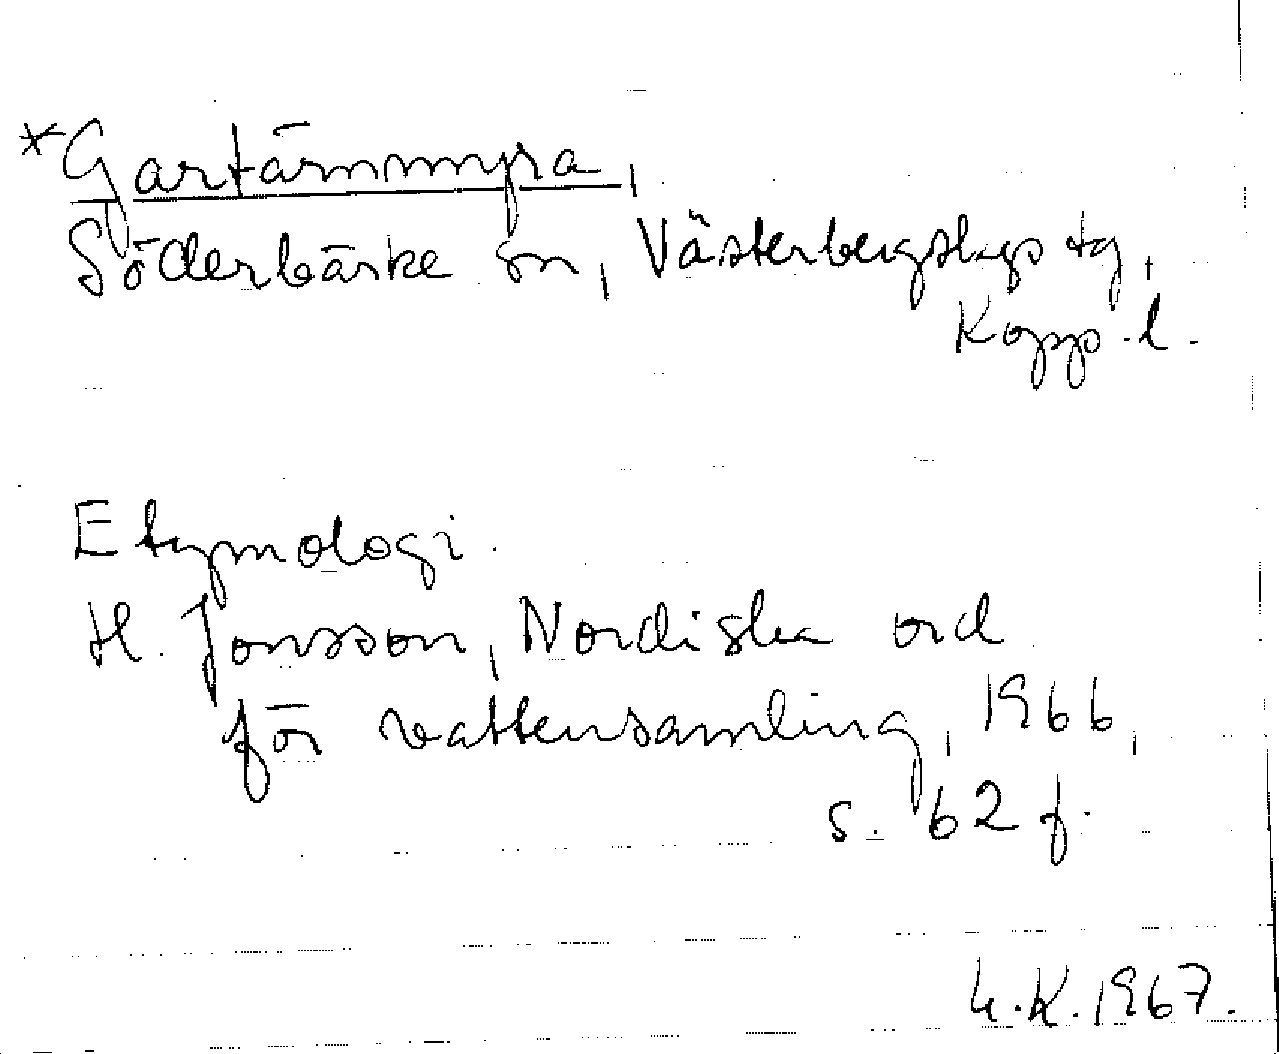 *Gartärnmyra,
Söderbärke sn, Västerbergslags tg,
Kopp. l.
Etymologi.
H. Jonsson, Nordiska ord
för vattensamling, 1966,
s. 62 f.
H.K. 1967.